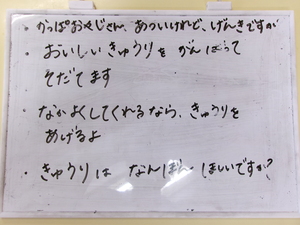 ・かっぱおやじさん、あついけれど、げんきですか
・おいしいきゅうりをがんばって
そだてます
・なかよくしてくれるなら、きゅうりを
あげるよ
・きゅうりは なんぼん ほしいですか?